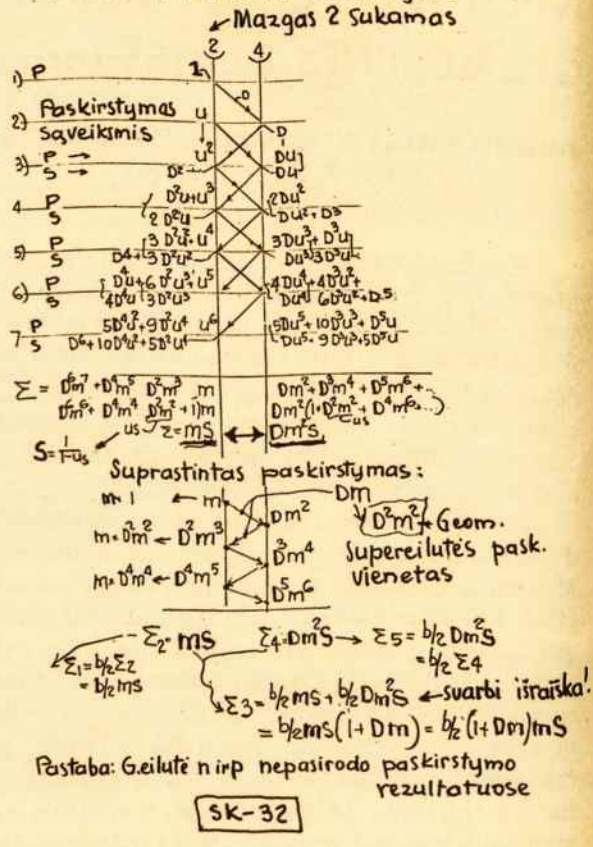 Mazgas 2 Sukamas
2 4
1) P 1 D
2) Paskirstymas U D
sąveiksmis
3) P → U² DU
S → D² DU
4 P D²U+U³ 2DU²
S 2D²U DU²+D³
5) P 3D²U²+U⁴ 3DU³+D³U
S D⁴+3D²U² DU³ 3D³U
6) P D⁴U+6D²U³+U⁵ 4DU⁴+4D³U²+
S 4D⁴U 3D²U³ DU⁴ 6D³U²+D⁵
7 P 5D⁴U²+9D²U⁴ U⁶ 5DU⁵+10D³U³+D⁵U
S D⁶+10D⁴U²+5D²U⁴ DU⁵+9D³U³+5D⁵U
Σ = D⁶m⁷+D⁴m⁵ D²m³ m Dm²+D³m⁴+D⁵m⁶+..
D⁶m⁶+D⁴m⁴ D²m²+1)m Dm²(1+D²m²+D⁴m⁶...)
us Σ=mS ↔ Dm²S, us
S=1/1-us
Suprastintas paskirstymas:
m·1 ← m Dm
Dm² D²m² ← Geom.
m·D²m² ← D²m³ Supereilutės pask.
D³m⁴ vienetas
m·D⁴m⁴ ← D⁴m⁵
D⁵m⁶
Σ2=mS Σ4=Dm²S → Σ5=b/2Dm²S
Σ1=b/2Σ2 =b/2Σ4
=b/2mS
Σ3=b/2mS+b/2Dm²S ← svarbi išraiška!
=b/2mS(1+Dm)=b/2(1+Dm)mS
Pastaba: G.eilutė n ir p nepasirodo paskirstymo
rezultatuose
SK-32